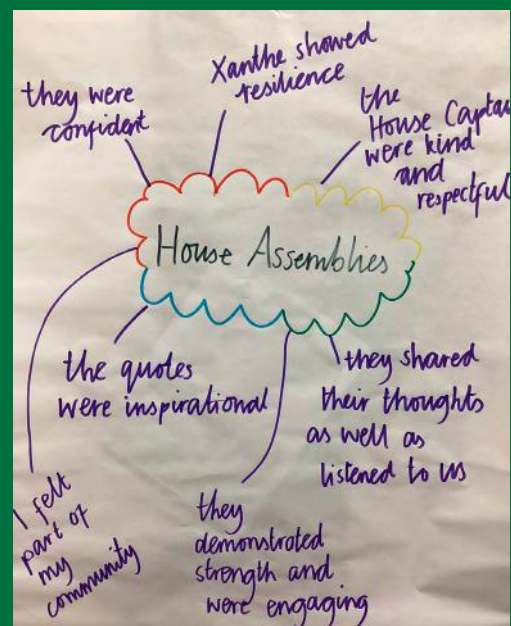 they were
confident
Xanthe showed
resilience
the
House Captai
were kind
and
respectful
House Assemblies
the quotes
were inspirational
they shared
their thoughts
as well as
listened to us
I felt
part of
my
community
they
demonstrated
strength and
were engaging